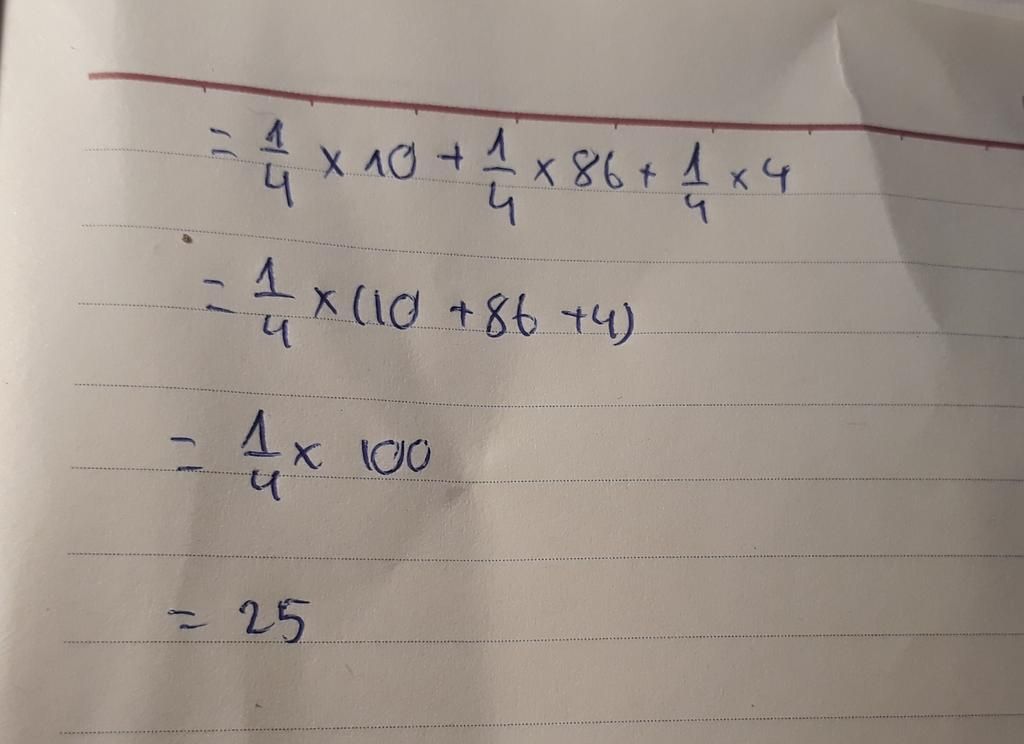 = 1/4 × 10 + 1/4 × 86 + 1/4 × 4
= 1/4 × (10 + 86 + 4)
= 1/4 × 100
= 25